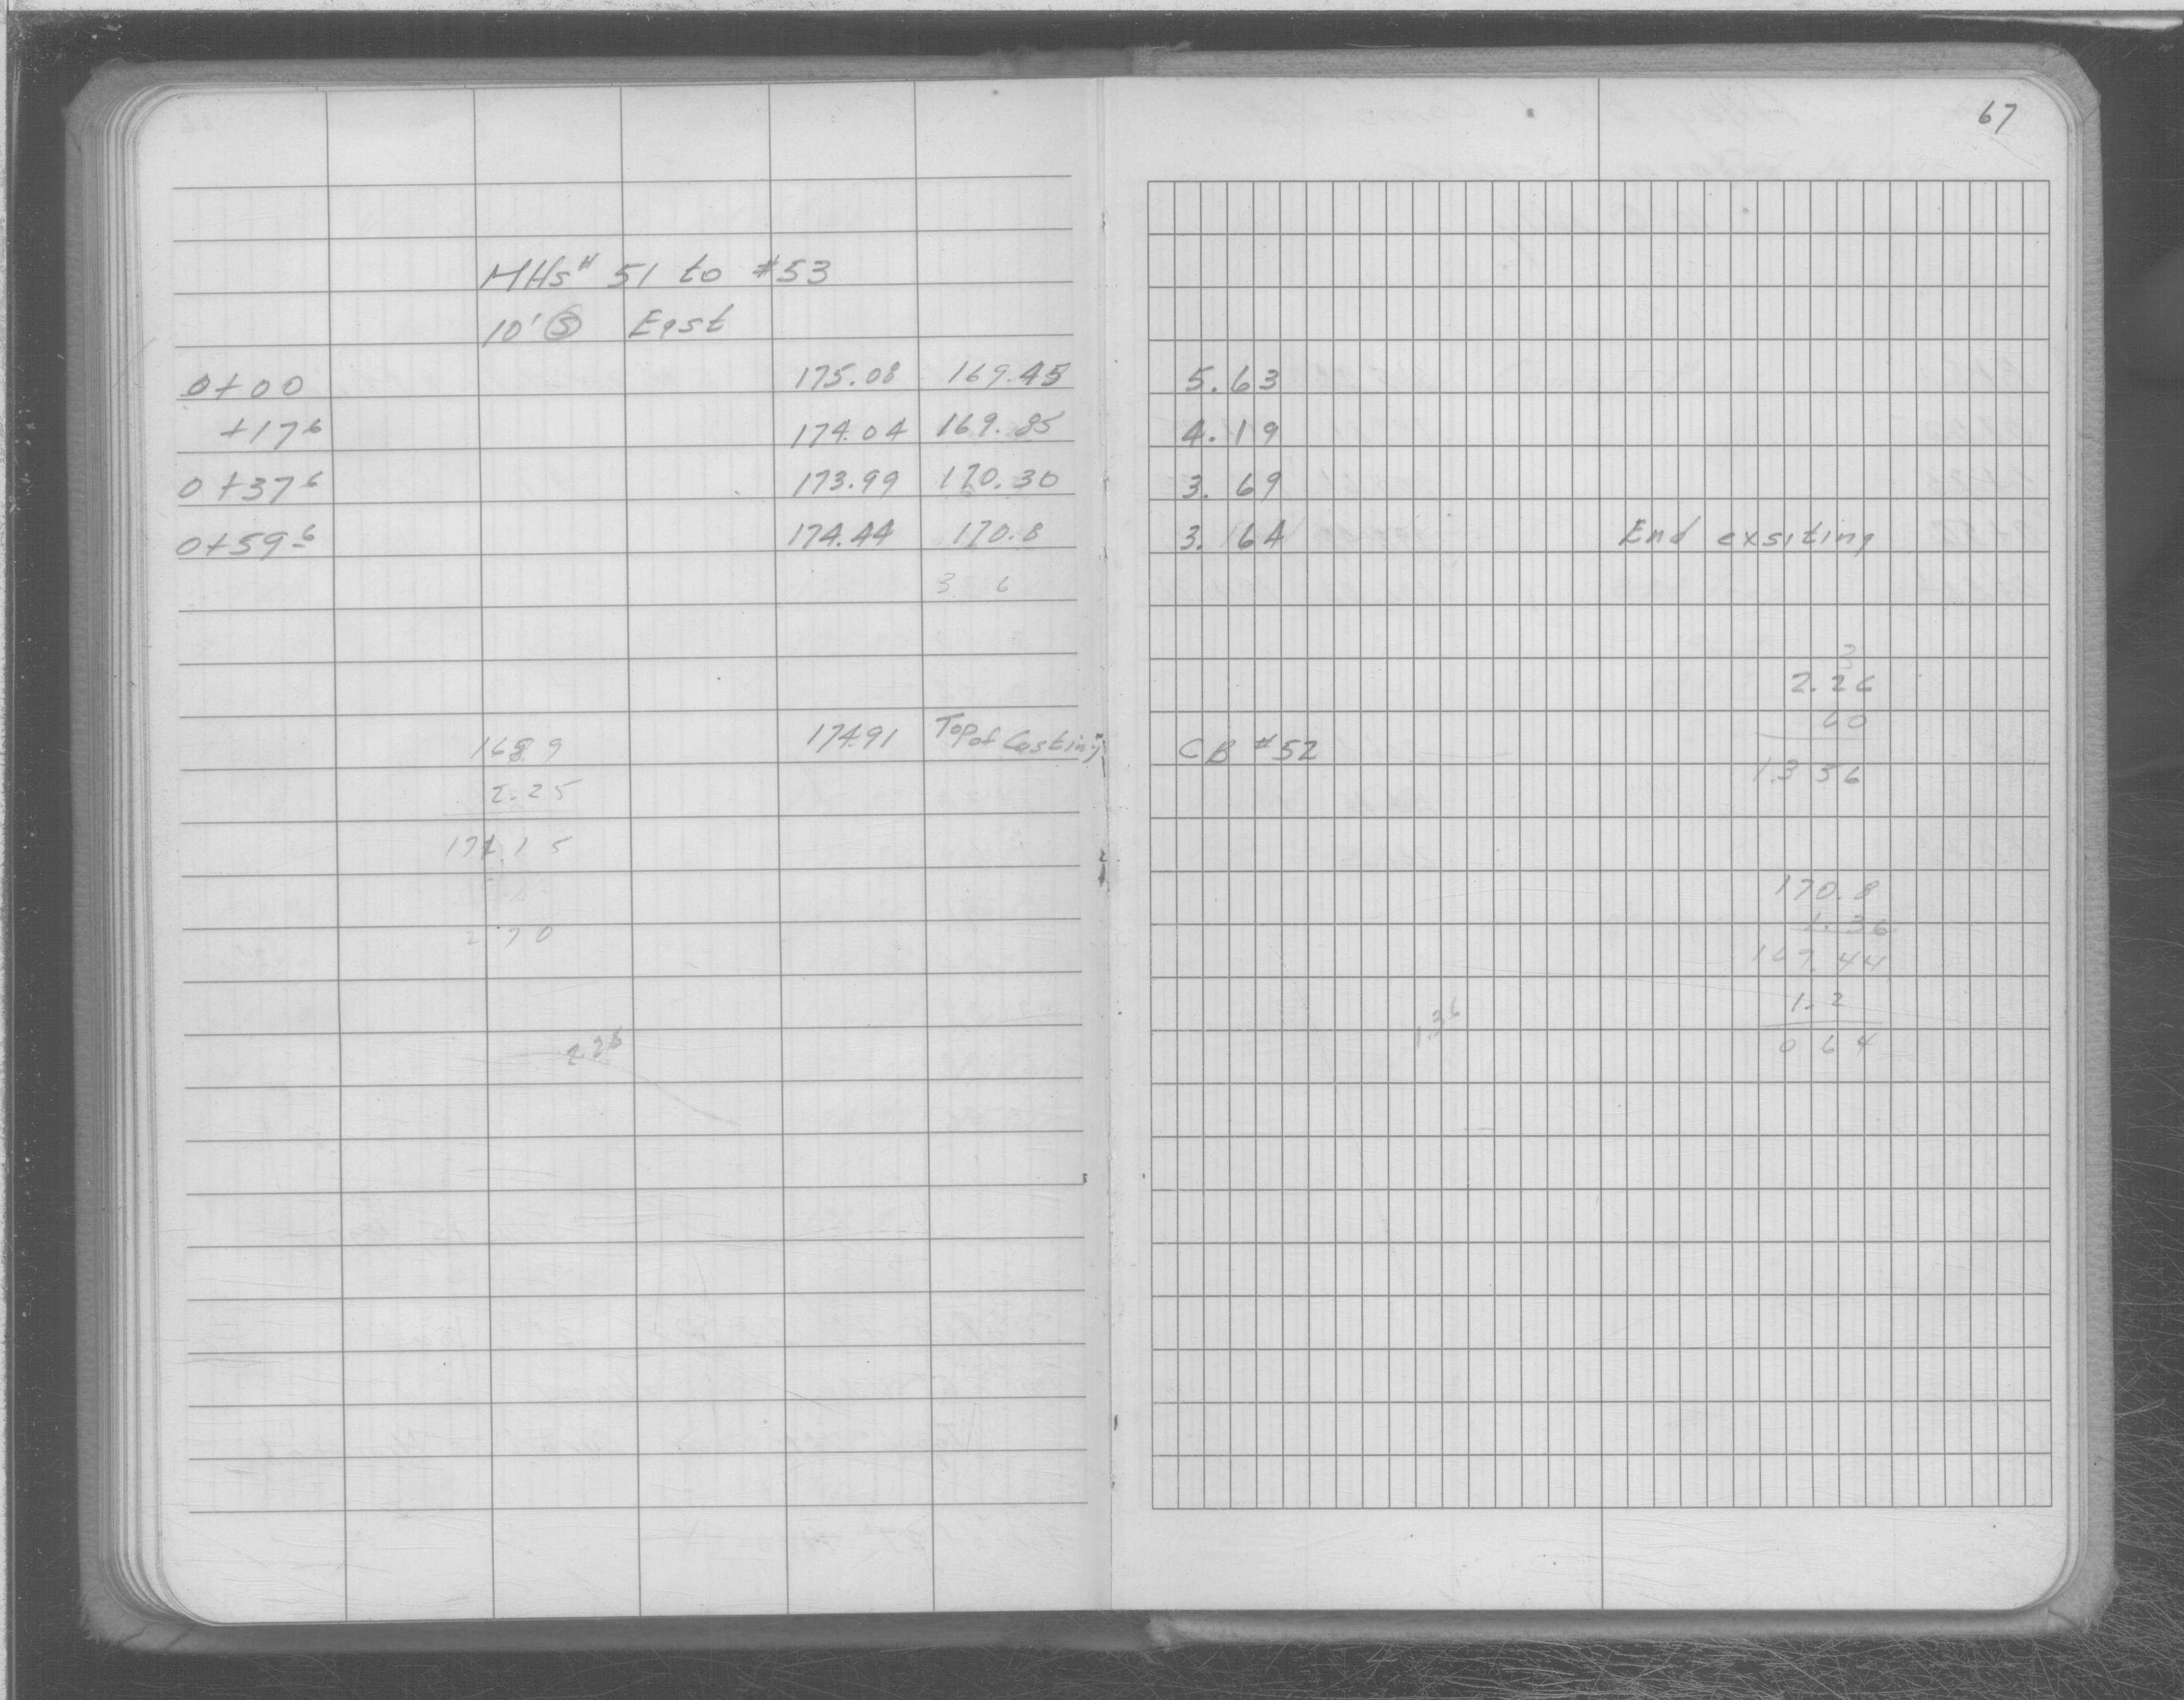 67
MHs # 51 to #53
10' Ⓢ East
0+00 175.08 169.45 5.63
+17⁶ 174.04 169.85 4.19
0+37⁶ 173.99 170.30 3.69
0+59⁶ 174.44 170.8 3.64 End exsiting
3 6
174.91 Top of Casting CB #52
2.25
2.70
2.26
2.26
60
1.356
170.8
1.36
169.44
1.2
0 64
1.36